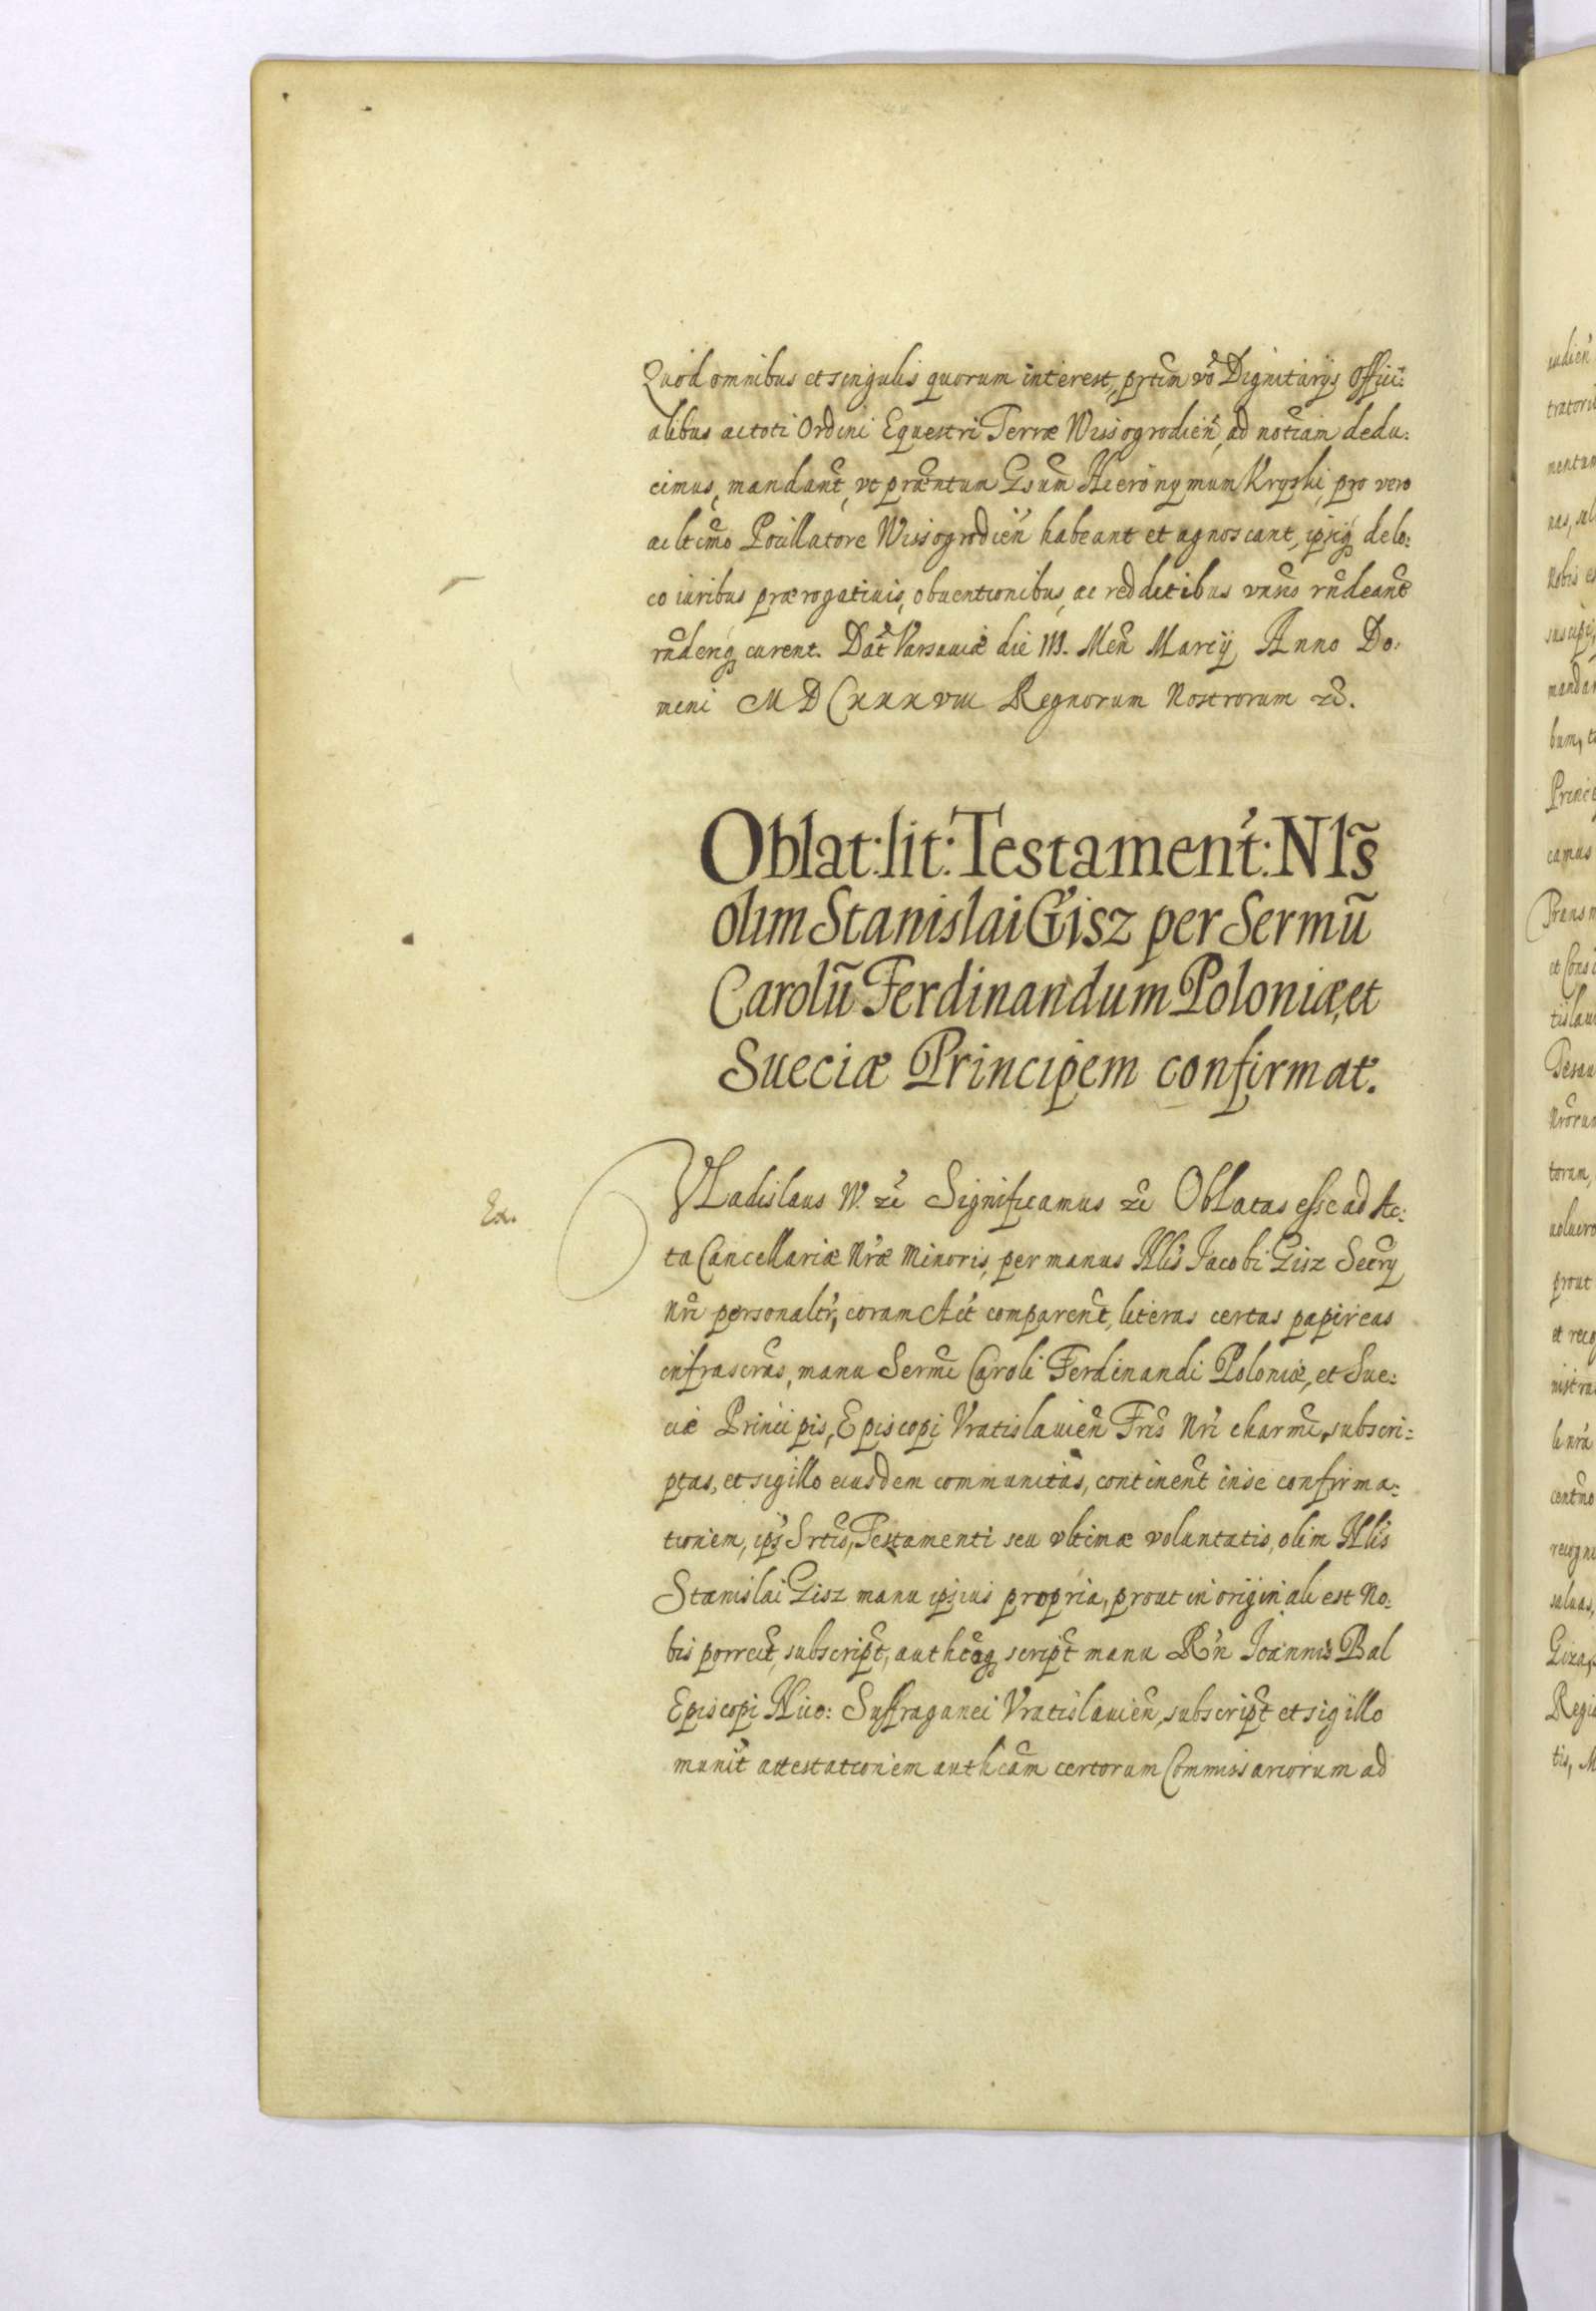 Quod omnibus et singulis quorum interest, prtim vo Dignitarijs Offici:
alibus ac toti Ordini Equestri Terræ Wissogrodień, ad notiam dedu:
cimus, mandant, ut præntum Gsum Hieronymum Kryski, pro vero
ac ltimo Pocillatore Wissogrodień habeant et agnoscant, ipsiq3 de lo:
co iuribus prærogatiuis, obuentionibus, ac redditibus vnsis rndeant
rnderiq3 curent. Dat Varsauiæ die III. Men Marcij Anno Do:
mini MDCxxxviii Regnorum Nostrorum ꝛc̃.
Oblat: lit: Testament: Nls̃
olim Stanislai Gisz per Sermũ
Carolũ Ferdinandum Poloniæ, et
Sueciæ Principem confirmat.
Ex.
VLadislaus IV. ꝛc̃ Significamus ꝛc̃ Oblatas esse ad Ac:
ta Cancellariæ Nræ Minoris, per manus Nlis Iacobi Gisz Secry
Nri personaltr, coram Act comparent, literas certas papireas
infrascras, manu Sermi Caroli Ferdinandi Poloniæ, et Sue:
ciæ Principis, Episcopi Vratislauien Fris Nri charmi, subscri:
ptas, et sigillo eiusdem communitas, continent in se confirma:
tionem, ips Srtis, Testamenti seu vltimæ voluntatis, olim Nlis
Stanislai Gisz manu ipsius propria, prout in originali est No:
bis porrect, subscript, authcaq3 script manu Rn Ioannis Bal
Episcopi Nico: Suffraganei Vratislauien, subscript et sigillo
munit attestationem authcam certorum Commissariorum ad